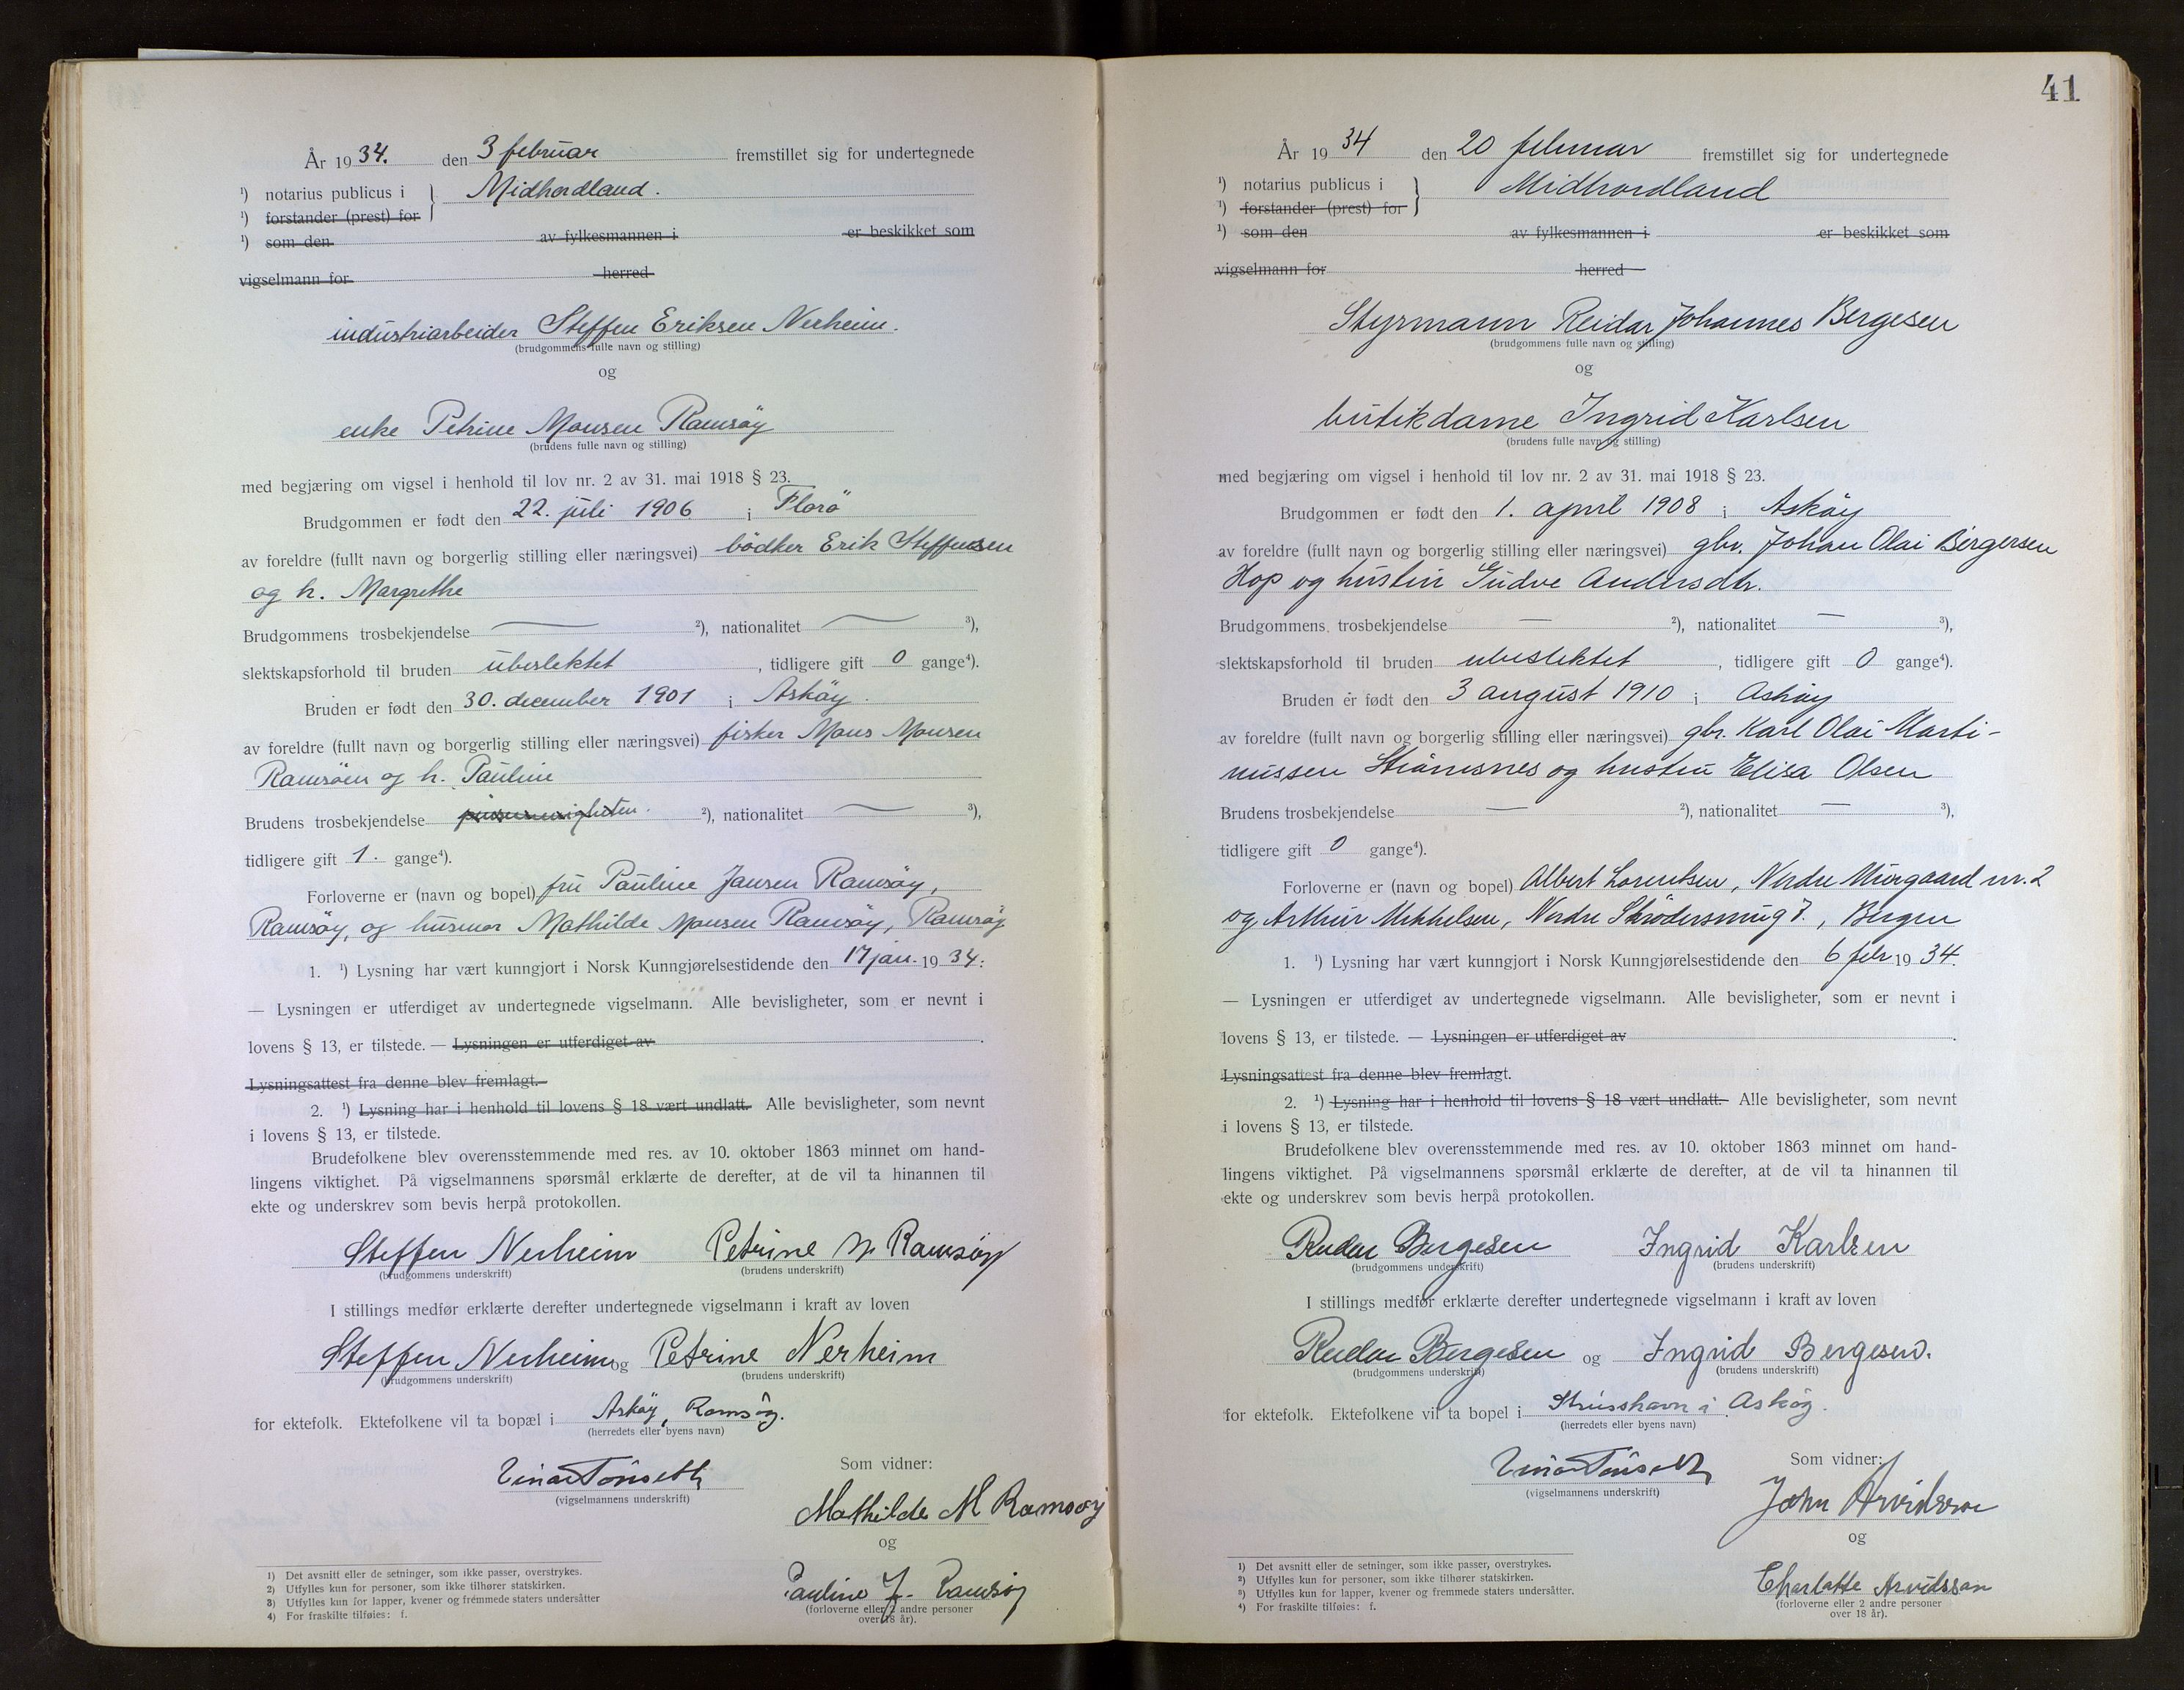 År 1934. den 3 februar fremstillet sig for undertegnede
¹) notarius publicus i } Midhordland.
¹) forstander (prest) for
¹) som den av fylkesmannen i er beskikket som
vigselmann for herred
industriarbeider Steffen Eriksen Nerheim.
(brudgommens fulle navn og stilling)
og
enke Petrine Monsen Ramsöy
(brudens fulle navn og stilling)
med begjæring om vigsel i henhold til lov nr. 2 av 31. mai 1918 § 23.
Brudgommen er født den 22. juli 1906 i Florö
av foreldre (fullt navn og borgerlig stilling eller næringsvei) bödker Erik Steffensen
og h. Margrethe
Brudgommens trosbekjendelse — ²), nationalitet — ³),
slektskapsforhold til bruden ubeslektet, tidligere gift 0 gange⁴).
Bruden er født den 30. december 1901 i Asköy.
av foreldre (fullt navn og borgerlig stilling eller næringsvei) fisker Mons Monsen
Ramsöen og h. Pauline
Brudens trosbekjendelse ²), nationalitet — ³),
tidligere gift 1. gange⁴).
Forloverne er (navn og bopel) fru Pauline Jansen Ramsöy,
Ramsöy, og husmor Mathilde Monsen Ramsöy, Ramsöy
1. ¹) Lysning har vært kunngjort i Norsk Kunngjørelsestidende den 17 jan. 1934.
— Lysningen er utferdiget av undertegnede vigselmann. Alle bevisligheter, som er nevnt i
lovens § 13, er tilstede. — Lysningen er utferdiget av .
Lysningsattest fra denne blev fremlagt.
2. ¹) Lysning har i henhold til lovens § 18 vært undlatt. Alle bevisligheter, som nevnt
i lovens § 13, er tilstede.
Brudefolkene blev overensstemmende med res. av 10. oktober 1863 minnet om hand-
lingens viktighet. På vigselmannens spørsmål erklærte de derefter, at de vil ta hinannen til
ekte og underskrev som bevis herpå protokollen.
Steffen Nerheim Petrine M Ramsöy
(brudgommens underskrift) (brudens underskrift)
I stillings medfør erklærte derefter undertegnede vigselmann i kraft av loven
Steffen Nerheim og Petrine Nerheim
(brudgommens underskrift) (brudens underskrift)
for ektefolk. Ektefolkene vil ta bopæl i Asköy, Ramsöy.
(herredets eller byens navn)
Einar Tönseth
(vigselmannens underskrift)
Som vidner:
Mathilde M Ramsøy
og
Pauline J. Ramsöy
(forloverne eller 2 andre personer
over 18 år).
1) Det avsnitt eller de setninger, som ikke passer, overstrykes.
2) Utfylles kun for personer, som ikke tilhører statskirken.
3) Utfylles kun for lapper, kvener og fremmede staters undersåtter
4) For fraskilte tilføies: f.
41
År 1934 den 20 februar fremstillet sig for undertegnede
¹) notarius publicus i } Midhordland
¹) forstander (prest) for
¹) som den av fylkesmannen i er beskikket som
vigselmann for herred
Styrmann Reidar Johannes Bergesen
(brudgommens fulle navn og stilling)
og
butikdame Ingrid Karlsen
(brudens fulle navn og stilling)
med begjæring om vigsel i henhold til lov nr. 2 av 31. mai 1918 § 23.
Brudgommen er født den 1. april 1908 i Asköy
av foreldre (fullt navn og borgerlig stilling eller næringsvei) gbr. Johan Olai Birgersen
Hop og hustru Gudve Andersdtr.
Brudgommens trosbekjendelse — ²), nationalitet — ³),
slektskapsforhold til bruden ubeslektet, tidligere gift 0 gange⁴).
Bruden er født den 3 august 1910 i Asköy
av foreldre (fullt navn og borgerlig stilling eller næringsvei) gbr. Karl Olai Marti-
nussen og hustru Elisa Olsen
Brudens trosbekjendelse — ²), nationalitet — ³),
tidligere gift 0 gange⁴).
Forloverne er (navn og bopel) Albert Lorentsen, Nerdre Murgaard nr. 2
og Arthur Mikkelsen, Nordre Skrödersmug 7., Bergen
1. ¹) Lysning har vært kunngjort i Norsk Kunngjørelsestidende den 6 febr 1934.
— Lysningen er utferdiget av undertegnede vigselmann. Alle bevisligheter, som er nevnt i
lovens § 13, er tilstede. — Lysningen er utferdiget av .
Lysningsattest fra denne blev fremlagt.
2. ¹) Lysning har i henhold til lovens § 18 vært undlatt. Alle bevisligheter, som nevnt
i lovens § 13, er tilstede.
Brudefolkene blev overensstemmende med res. av 10. oktober 1863 minnet om hand-
lingens viktighet. På vigselmannens spørsmål erklærte de derefter, at de vil ta hinannen til
ekte og underskrev som bevis herpå protokollen.
Reidar Bergesen Ingrid Karlsen
(brudgommens underskrift) (brudens underskrift)
I stillings medfør erklærte derefter undertegnede vigselmann i kraft av loven
Reidar Bergesen og Ingrid Bergesen.
(brudgommens underskrift) (brudens underskrift)
for ektefolk. Ektefolkene vil ta bopel i Strusshavn i Askøy.
(herredets eller byens navn)
Einar Tönseth
(vigselmannens underskrift)
Som vidner:
John Arvidsson
og
Charlotte Arvidsson
(forloverne eller 2 andre personer
over 18 år).
1) Det avsnitt eller de setninger, som ikke passer, overstrykes.
2) Utfylles kun for personer, som ikke tilhører statskirken.
3) Utfylles kun for lapper, kvener og fremmede staters undersåtter.
4) For fraskilte tilføies: f.